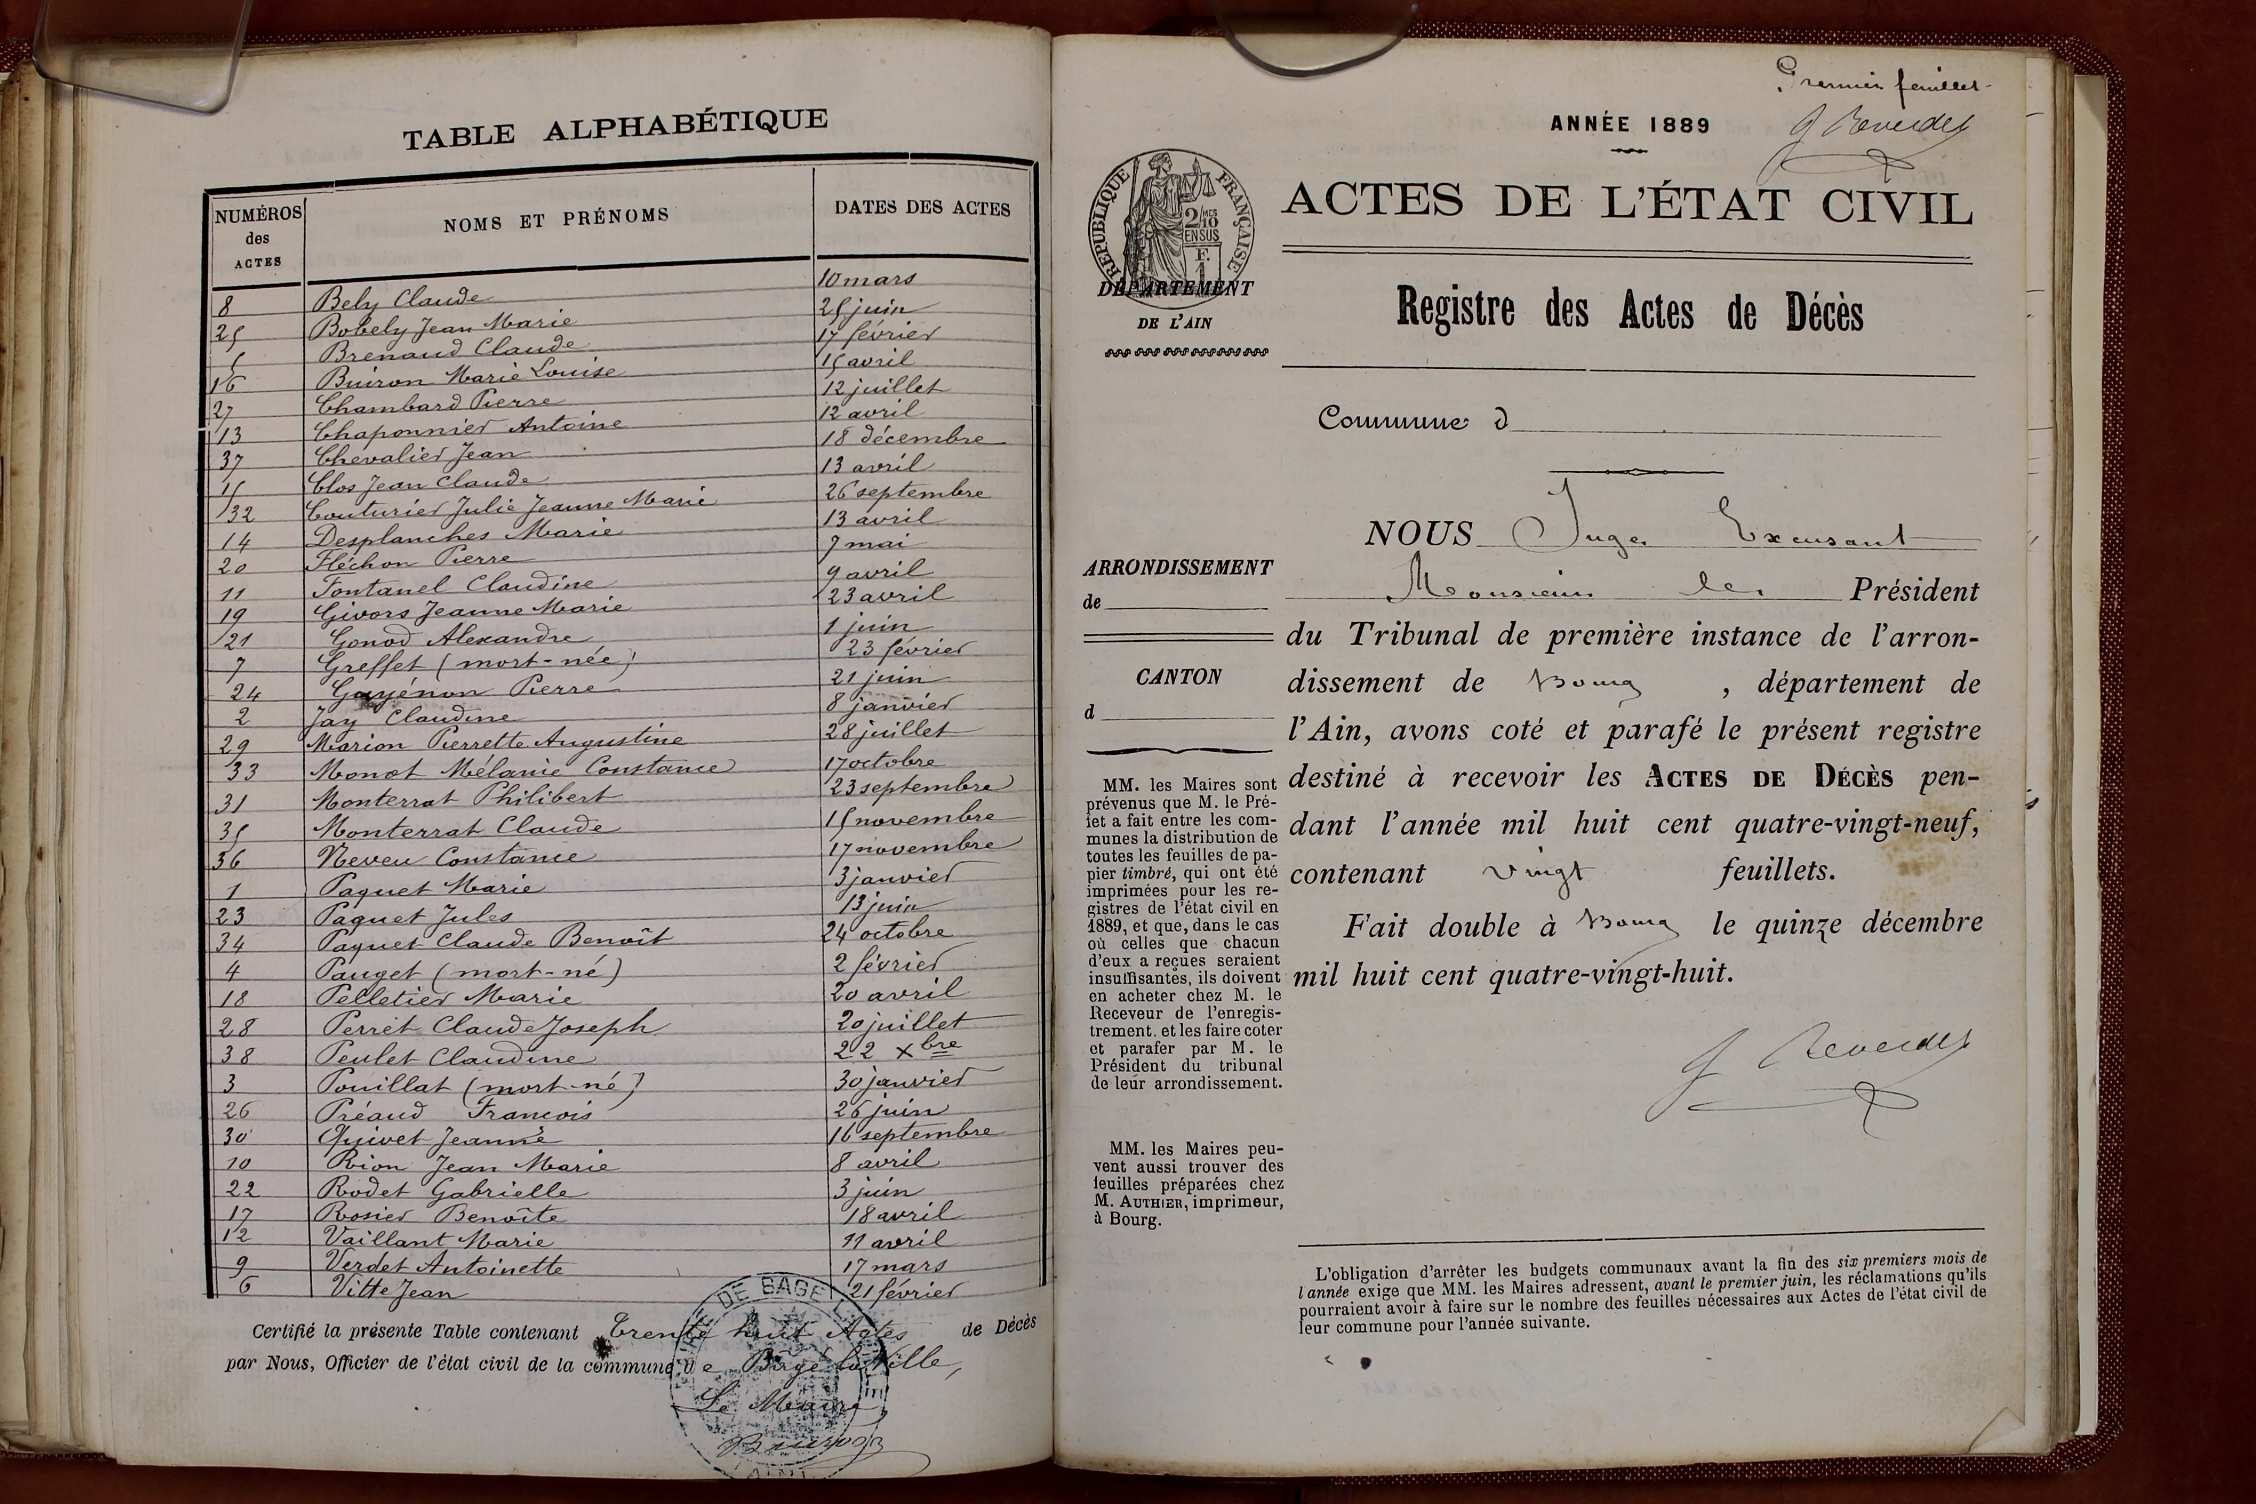 TABLE ALPHABÉTIQUE
NUMÉROS des ACTES
NOMS ET PRÉNOMS
DATES DES ACTES
8 Bely Claude 10 mars
25 Bobely Jean Marie 25 juin
5 Brenaud Claude 17 février
16 Buiron Marie Louise 15 avril
27 Chambard Pierre 12 juillet
13 Chaponnier Antoine 12 avril
37 Chevalier Jean 18 décembre
15 Clos Jean Claude 13 avril
32 Couturier Julie Jeanne Marie 26 septembre
14 Desplanches Marie 13 avril
20 Fléchon Pierre 7 mai
11 Fontanel Claudine 9 avril
19 Givors Jeanne Marie 23 avril
21 Gonod Alexandre 1 juin
7 Greffet (mort-née) 23 février
24 Guyénon Pierre 21 juin
2 Jay Claudine 8 janvier
29 Marion Pierrette Augustine 28 juillet
33 Monot Mélanie Constance 17 octobre
31 Monterrat Philibert 23 septembre
35 Monterrat Claude 15 novembre
36 Neveu Constance 17 novembre
1 Paquet Marie 3 janvier
23 Paquet Jules 13 juin
34 Paquet Claude Benoît 24 octobre
4 Pauget (mort-né) 2 février
18 Pelletier Marie 20 avril
28 Perret Claude Joseph 20 juillet
38 Peulet Claudine 22 Xbre
3 Pouillat (mort-né) 30 janvier
26 Préaud François 26 juin
30 Quivet Jeanne 16 septembre
10 Rion Jean Marie 8 avril
22 Rodet Gabrielle 3 juin
17 Rosier Benoîte 18 avril
12 Vaillant Marie 11 avril
9 Verdet Antoinette 17 mars
6 Vitte Jean 21 février
Certifié la présente Table contenant Trente huit Actes de Décès
par Nous, Officier de l'état civil de la commune de Bâgé la Ville,
Le Maire
Premier feuillet
G Reverdy
ANNÉE 1889
RÉPUBLIQUE FRANÇAISE
2/10 MES
EN SUS
F.
1
ACTES DE L'ÉTAT CIVIL
DÉPARTEMENT
DE L'AIN
Registre des Actes de Décès
Commune d
NOUS Juge Excusant
Monsieur le Président
du Tribunal de première instance de l'arron-
dissement de Bourg, département de
l'Ain, avons coté et parafé le présent registre
destiné à recevoir les ACTES DE DÉCÈS pen-
dant l'année mil huit cent quatre-vingt-neuf,
contenant vingt feuillets.
Fait double à Bourg le quinze décembre
mil huit cent quatre-vingt-huit.
G Reverdy
ARRONDISSEMENT
de
CANTON
d
MM. les Maires sont
prévenus que M. le Pré-
fet a fait entre les com-
munes la distribution de
toutes les feuilles de pa-
pier timbré, qui ont été
imprimées pour les re-
gistres de l'état civil en
1889, et que, dans le cas
où celles que chacun
d'eux a reçues seraient
insuffisantes, ils doivent
en acheter chez M. le
Receveur de l'enregis-
trement, et les faire coter
et parafer par M. le
Président du tribunal
de leur arrondissement.
MM. les Maires peu-
vent aussi trouver des
feuilles préparées chez
M. AUTHIER, imprimeur,
à Bourg.
L'obligation d'arrêter les budgets communaux avant la fin des six premiers mois de
l'année exige que MM. les Maires adressent, avant le premier juin, les réclamations qu'ils
pourraient avoir à faire sur le nombre des feuilles nécessaires aux Actes de l'état civil de
leur commune pour l'année suivante.